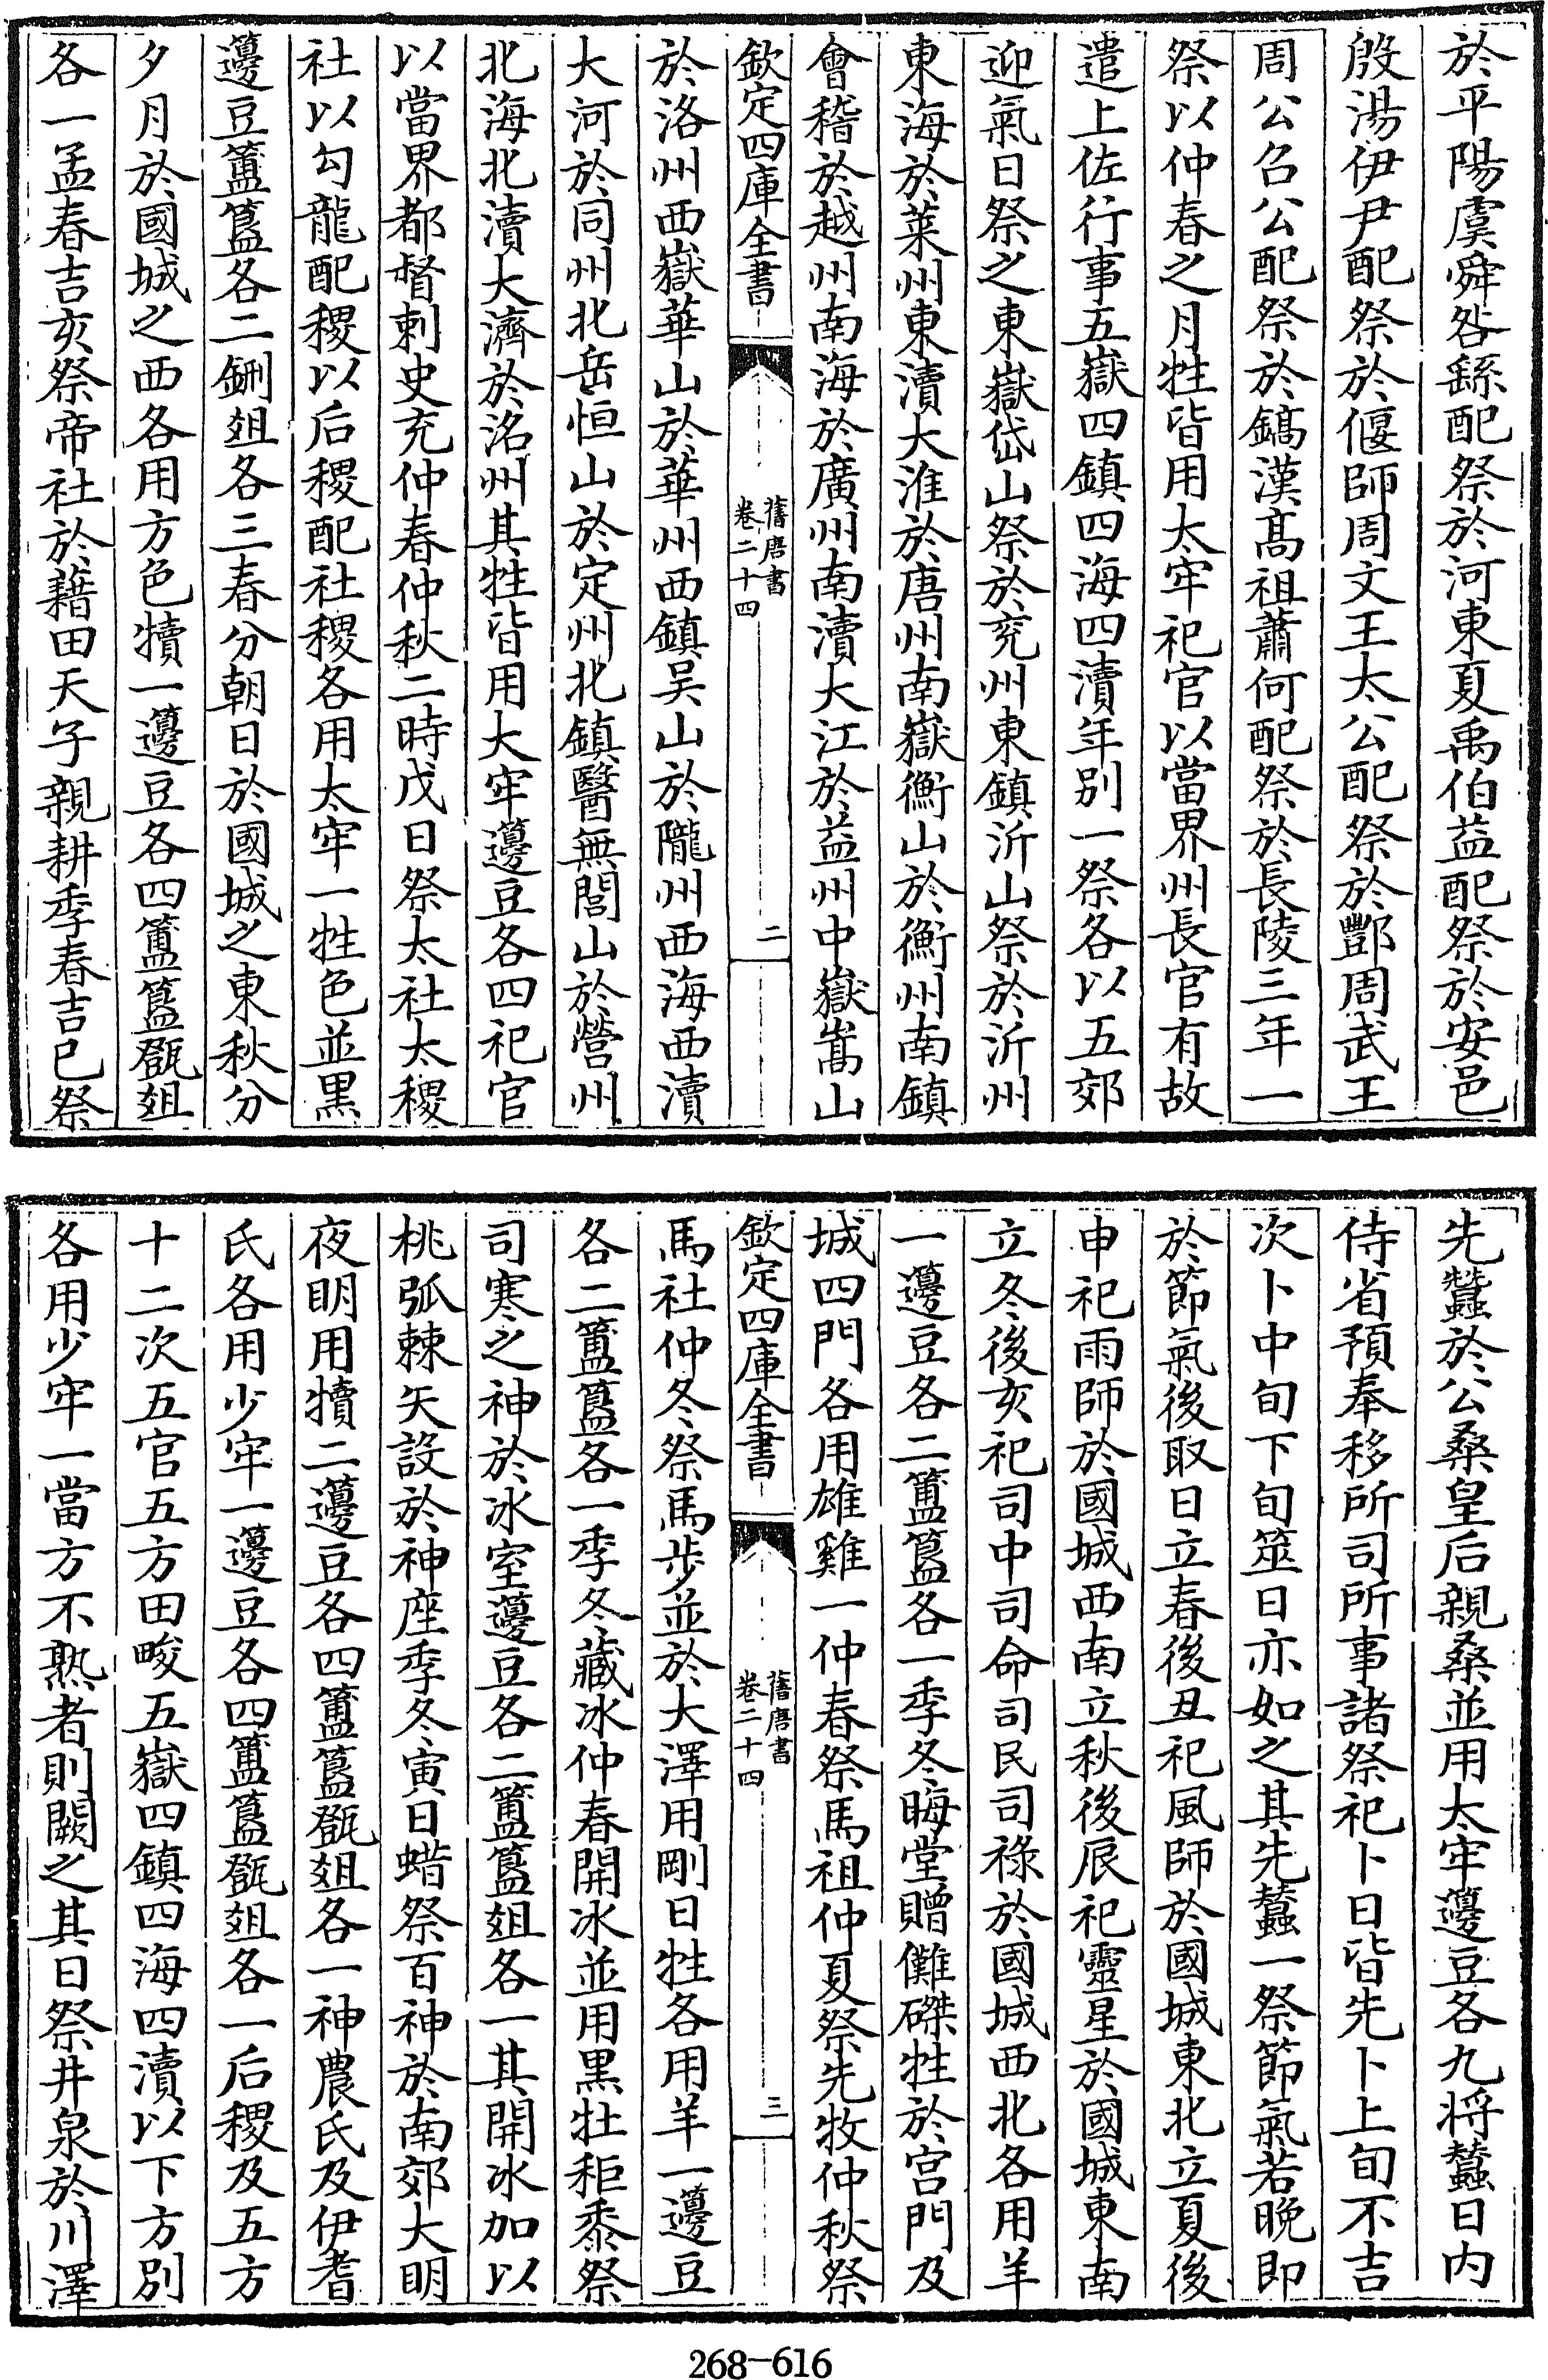 於平陽虞舜咎繇配祭於河東夏禹伯益配祭於安邑
殷湯伊尹配祭於偃師周文王太公配祭於酆周武王
周公召公配祭於鎬漢髙祖蕭何配祭於長陵三年一
祭以仲春之月牲皆用太牢祀官以當界州長官有故
遣上佐行事五嶽四鎮四海四瀆年别一祭各以五郊
迎氣日祭之東嶽岱山祭於兖州東鎮沂山祭於沂州
東海於萊州東瀆大淮於唐州南嶽衡山於衡州南鎮
會稽於越州南海於廣州南瀆大江於益州中嶽嵩山
欽定四庫全書
舊唐書
卷二十四
二
於洛州西嶽華山於華州西鎮吴山於隴州西海西瀆
大河於同州北岳恒山於定州北鎮醫無閭山於營州
北海北瀆大濟於洺州其牲皆用大牢籩豆各四祀官
以當界都督刺史充仲春仲秋二時戊日祭太社太稷
社以勾龍配稷以后稷配社稷各用太牢一牲色並黒
籩豆簠簋各二鉶俎各三春分朝日於國城之東秋分
夕月於國城之西各用方色犢一籩豆各四簠簋㽅俎
各一孟春吉亥祭帝社於藉田天子親耕季春吉巳祭
先蠶於公桑皇后親桑並用太牢籩豆各九將蠶日内
侍省預奉移所司所事諸祭祀卜日皆先卜上旬不吉
次卜中旬下旬筮日亦如之其先蠶一祭節氣若晚即
於節氣後取日立春後丑祀風師於國城東北立夏後
申祀雨師於國城西南立秋後辰祀靈星於國城東南
立冬後亥祀司中司命司民司祿於國城西北各用羊
一籩豆各二簠簋各一季冬晦堂贈儺磔牲於宫門及
城四門各用雄雞一仲春祭馬祖仲夏祭先牧仲秋祭
欽定四庫全書
舊唐書
卷二十四
三
馬社仲冬祭馬步並於大澤用剛日牲各用羊一籩豆
各二簠簋各一季冬藏冰仲春開冰並用黒牡秬黍祭
司寒之神於冰室籩豆各二簠簋俎各一其開冰加以
桃弧棘矢設於神座季冬寅日蜡祭百神於南郊大明
夜明用犢二籩豆各四簠簋㽅俎各一神農氏及伊耆
氏各用少牢一籩豆各四簠簋㽅俎各一后稷及五方
十二次五官五方田畯五嶽四鎮四海四瀆以下方别
各用少牢一當方不熟者則闕之其日祭井泉於川澤
268-616